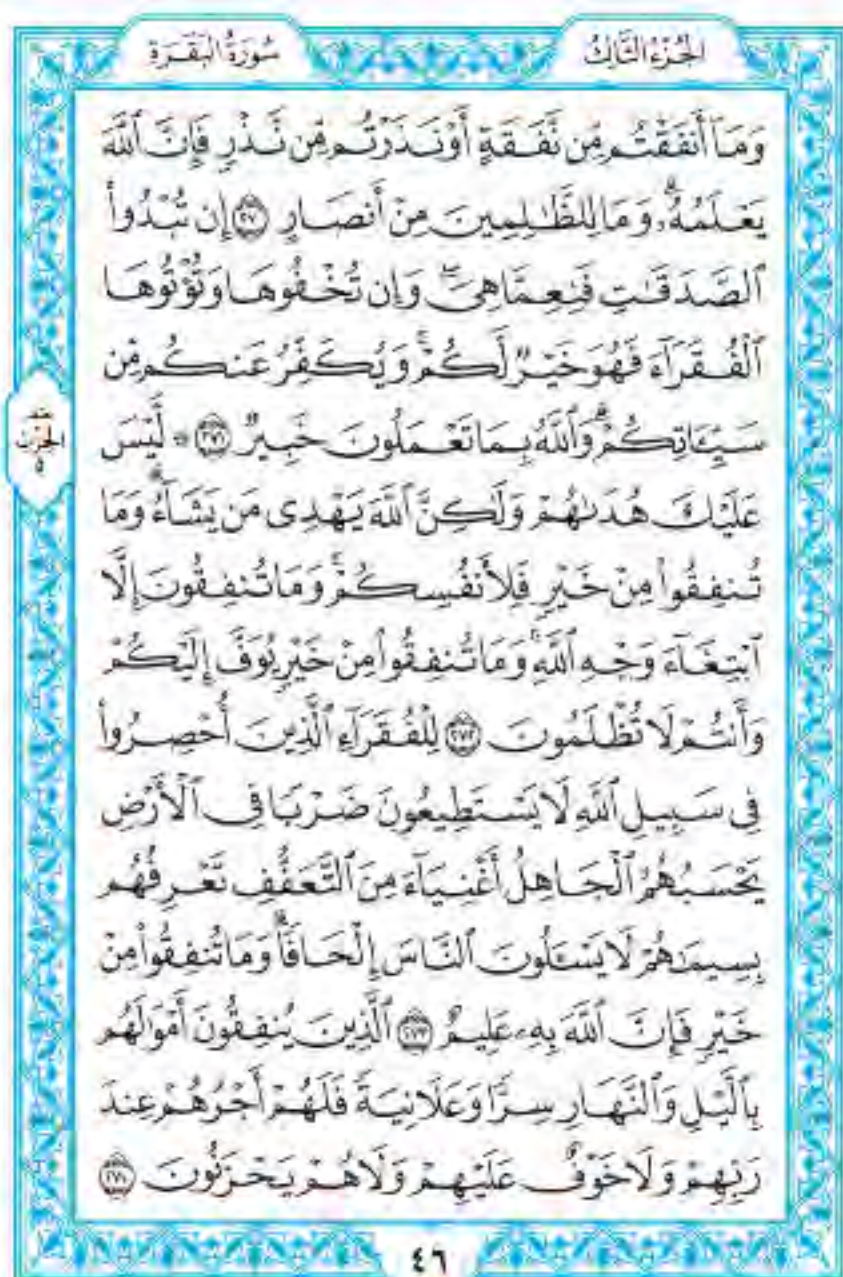 الجُزْءُ الثَّالِثُ
سُورَةُ البَقَرَةِ
وَمَآ أَنفَقْتُم مِّن نَّفَقَةٍ أَوْ نَذَرْتُم مِّن نَّذْرٍ فَإِنَّ ٱللَّهَ
يَعْلَمُهُۥۗ وَمَا لِلظَّٰلِمِينَ مِنْ أَنصَارٍ ٢٧٠ إِن تُبْدُوا۟
ٱلصَّدَقَٰتِ فَنِعِمَّا هِىَۖ وَإِن تُخْفُوهَا وَتُؤْتُوهَا
ٱلْفُقَرَآءَ فَهُوَ خَيْرٌ لَّكُمْۚ وَيُكَفِّرُ عَنكُم مِّن
سَيِّـَٔاتِكُمْۗ وَٱللَّهُ بِمَا تَعْمَلُونَ خَبِيرٌ ٢٧١ ۞ لَّيْسَ
عَلَيْكَ هُدَىٰهُمْ وَلَٰكِنَّ ٱللَّهَ يَهْدِى مَن يَشَآءُۗ وَمَا
تُنفِقُوا۟ مِنْ خَيْرٍ فَلِأَنفُسِكُمْۚ وَمَا تُنفِقُونَ إِلَّا
ٱبْتِغَآءَ وَجْهِ ٱللَّهِۚ وَمَا تُنفِقُوا۟ مِنْ خَيْرٍ يُوَفَّ إِلَيْكُمْ
وَأَنتُمْ لَا تُظْلَمُونَ ٢٧٢ لِلْفُقَرَآءِ ٱلَّذِينَ أُحْصِرُوا۟
فِى سَبِيلِ ٱللَّهِ لَا يَسْتَطِيعُونَ ضَرْبًا فِى ٱلْأَرْضِ
يَحْسَبُهُمُ ٱلْجَاهِلُ أَغْنِيَآءَ مِنَ ٱلتَّعَفُّفِ تَعْرِفُهُم
بِسِيمَٰهُمْ لَا يَسْـَٔلُونَ ٱلنَّاسَ إِلْحَافًاۗ وَمَا تُنفِقُوا۟ مِنْ
خَيْرٍ فَإِنَّ ٱللَّهَ بِهِۦ عَلِيمٌ ٢٧٣ ٱلَّذِينَ يُنفِقُونَ أَمْوَٰلَهُم
بِٱلَّيْلِ وَٱلنَّهَارِ سِرًّا وَعَلَانِيَةً فَلَهُمْ أَجْرُهُمْ عِندَ
رَبِّهِمْ وَلَا خَوْفٌ عَلَيْهِمْ وَلَا هُمْ يَحْزَنُونَ ٢٧٤
الحِزْب
٥
٤٦